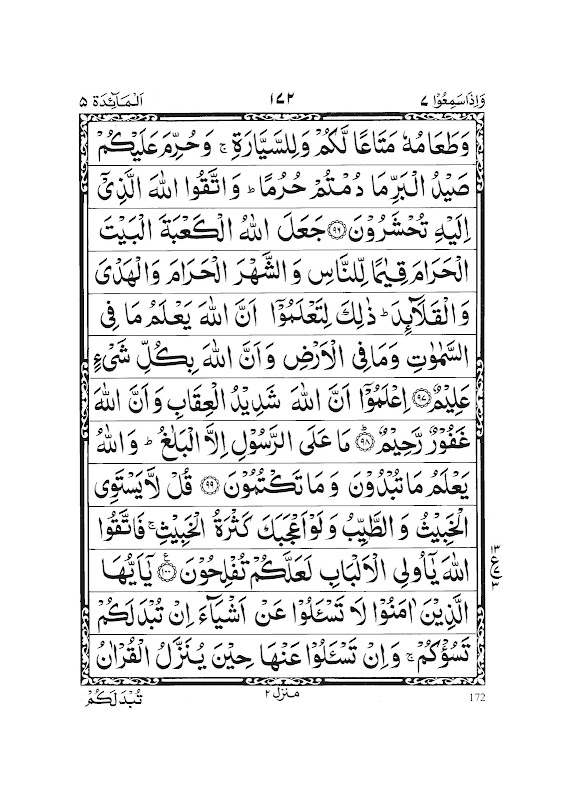 وَاِذَاسَمِعُوْا ٧ ١٧٢ اَلْمَآئِدَة ٥
وَطَعَامُهٗ مَتَاعًا لَّكُمْ وَلِلسَّيَّارَةِ ۚ وَحُرِّمَ عَلَيْكُمْ
صَيْدُ الْبَرِّ مَا دُمْتُمْ حُرُمًا ؕ وَاتَّقُوا اللّٰهَ الَّذِىْۤ
اِلَيْهِ تُحْشَرُوْنَ ﴿٩٦﴾ جَعَلَ اللّٰهُ الْكَعْبَةَ الْبَيْتَ
الْحَرَامَ قِيٰمًا لِّلنَّاسِ وَالشَّهْرَ الْحَرَامَ وَالْهَدْىَ
وَالْقَلَآئِدَ ؕ ذٰلِكَ لِتَعْلَمُوْۤا اَنَّ اللّٰهَ يَعْلَمُ مَا فِى
السَّمٰوٰتِ وَمَا فِى الْاَرْضِ وَاَنَّ اللّٰهَ بِكُلِّ شَىْءٍ
عَلِيْمٌ ﴿٩٧﴾ اِعْلَمُوْۤا اَنَّ اللّٰهَ شَدِيْدُ الْعِقَابِ وَاَنَّ اللّٰهَ
غَفُوْرٌ رَّحِيْمٌ ؕ﴿٩٨﴾ مَا عَلَى الرَّسُوْلِ اِلَّا الْبَلٰغُ ؕ وَاللّٰهُ
يَعْلَمُ مَا تُبْدُوْنَ وَمَا تَكْتُمُوْنَ ﴿٩٩﴾ قُلْ لَّا يَسْتَوِى
الْخَبِيْثُ وَالطَّيِّبُ وَلَوْ اَعْجَبَكَ كَثْرَةُ الْخَبِيْثِ ۚ فَاتَّقُوا
اللّٰهَ يٰۤاُولِى الْاَلْبَابِ لَعَلَّكُمْ تُفْلِحُوْنَ ﴿١٠٠﴾ يٰۤاَيُّهَا
الَّذِيْنَ اٰمَنُوْا لَا تَسْـَٔلُوْا عَنْ اَشْيَآءَ اِنْ تُبْدَ لَكُمْ
تَسُؤْكُمْ ۚ وَاِنْ تَسْـَٔلُوْا عَنْهَا حِيْنَ يُنَزَّلُ الْقُرْاٰنُ
١٣
ع
٣
172 منزل ٢ تُبْدَ لَكُمْ